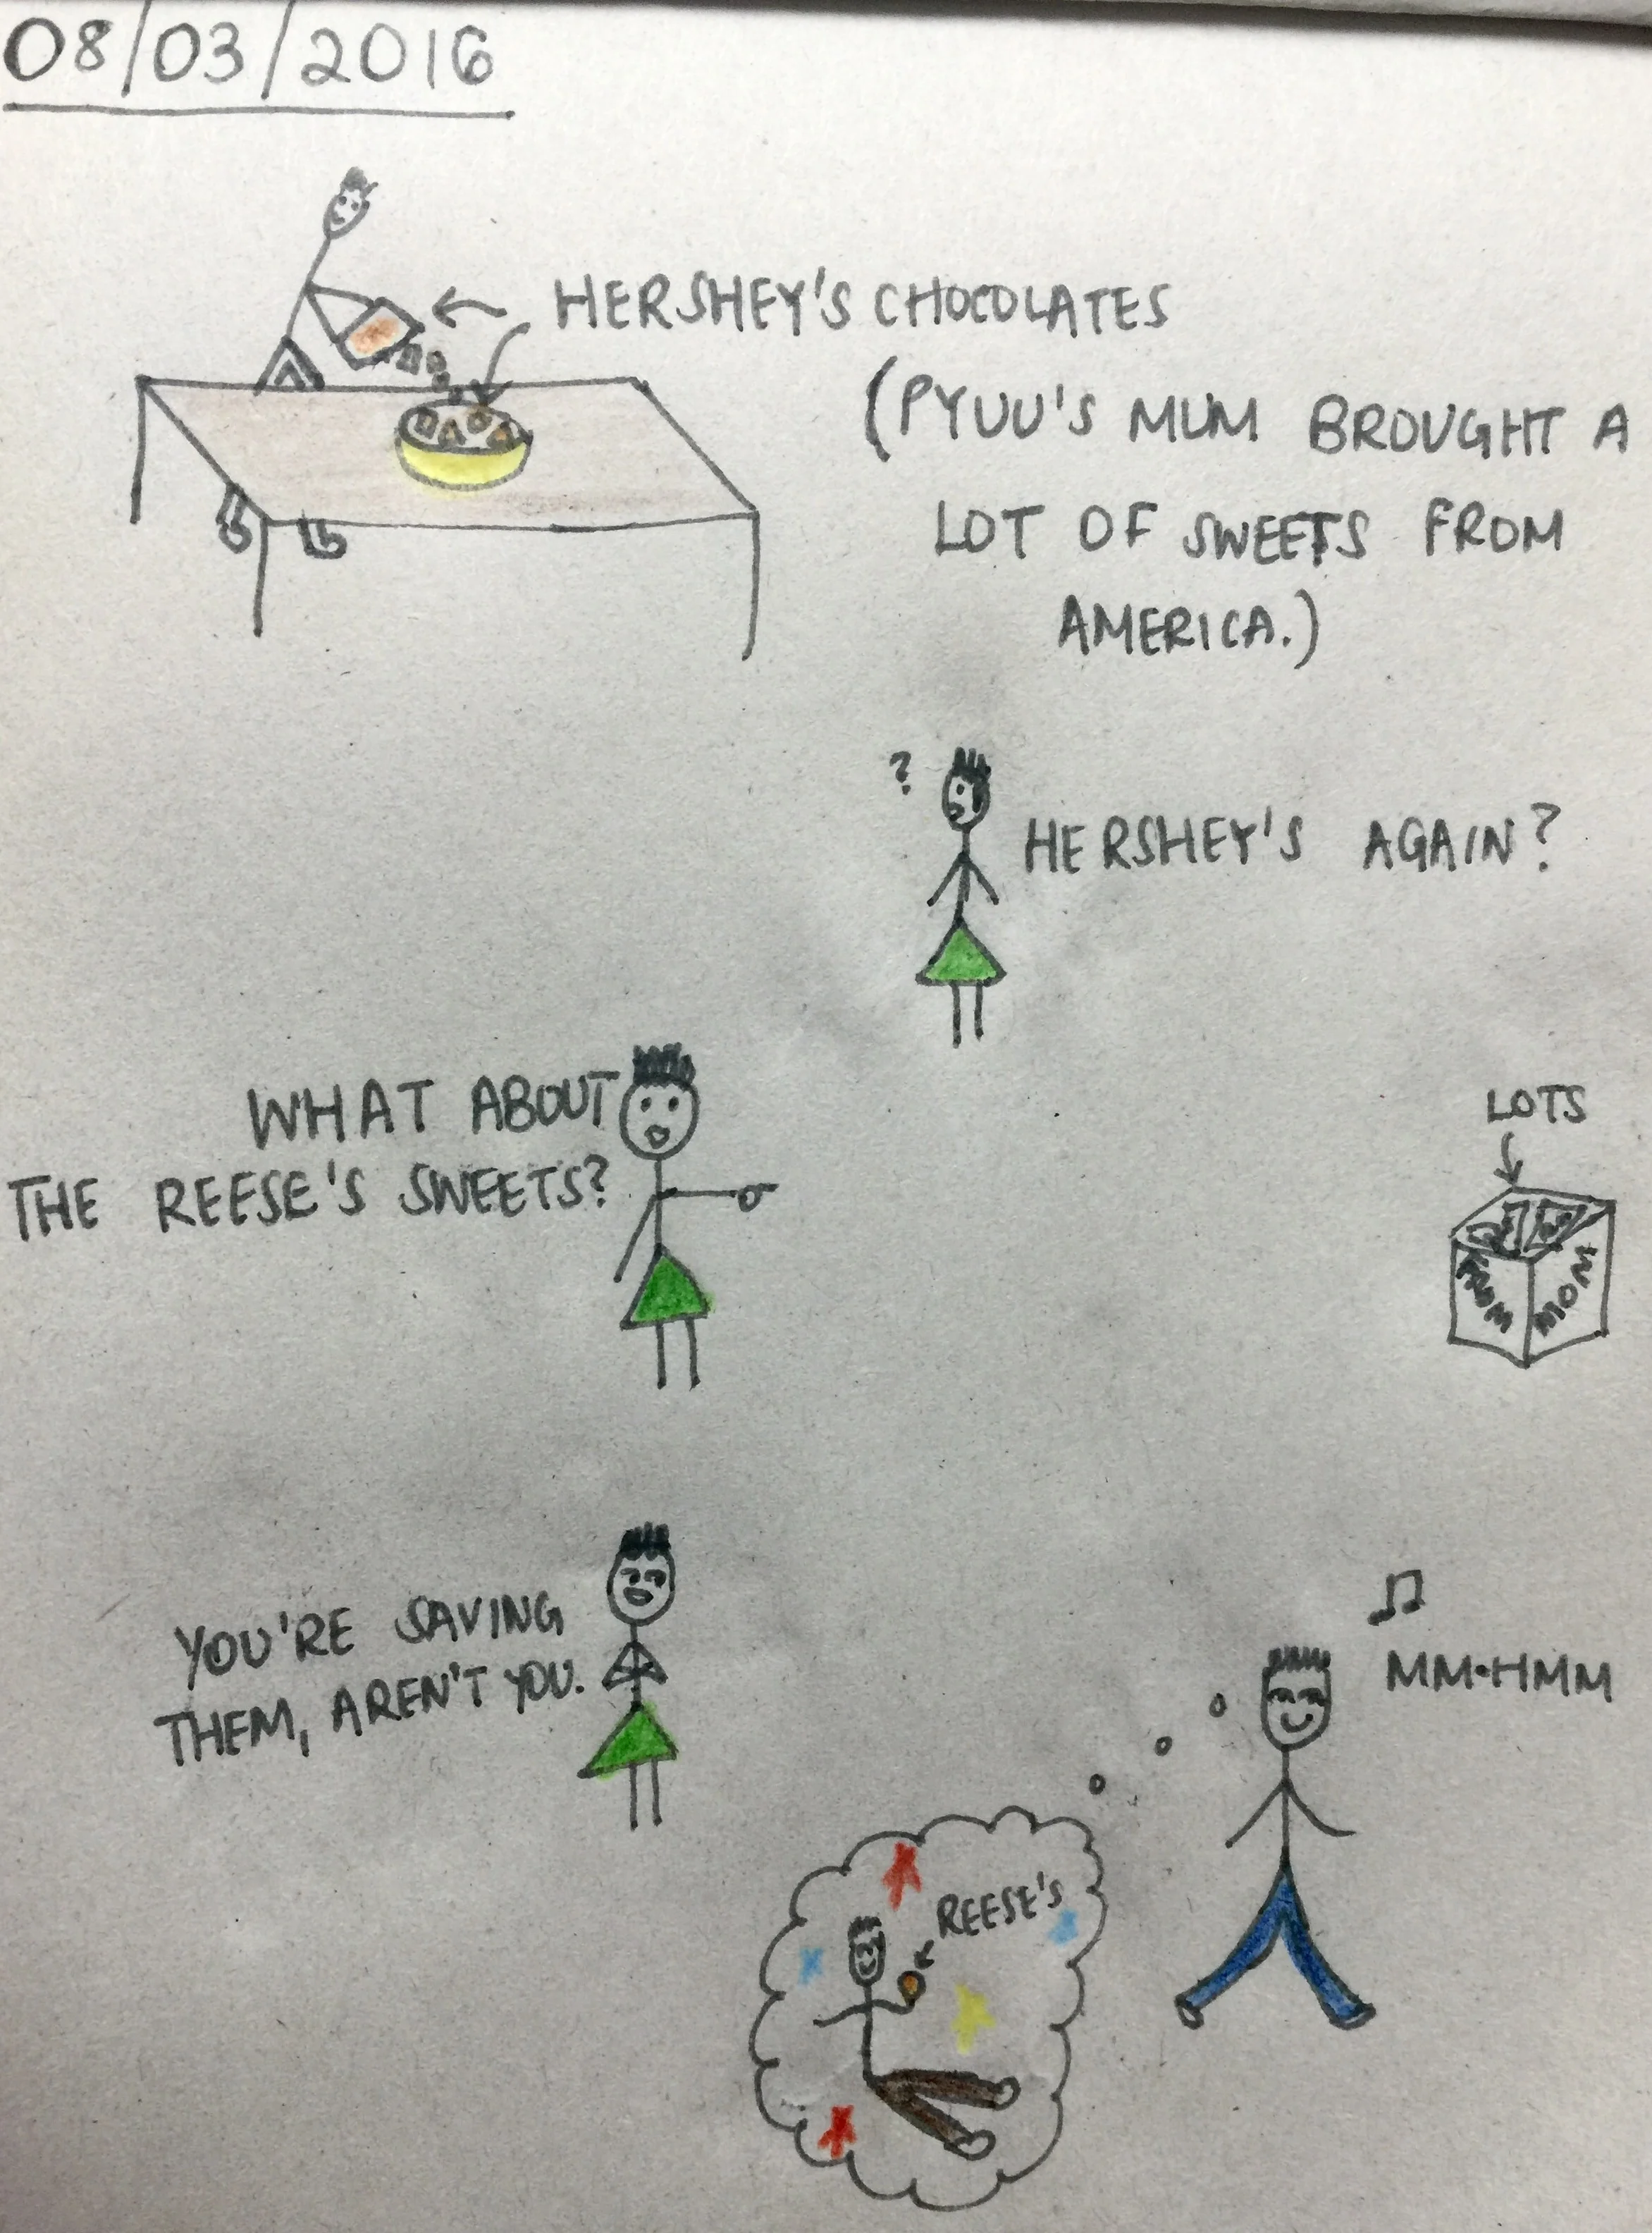 08/03/2016
HERSHEY'S CHOCOLATES
(PYUU'S MUM BROUGHT A
LOT OF SWEETS FROM
AMERICA.)
?
HERSHEY'S AGAIN?
WHAT ABOUT
THE REESE'S SWEETS?
LOTS
FROM MOM
YOU'RE SAVING
THEM, AREN'T YOU.
MM•HMM
REESE'S